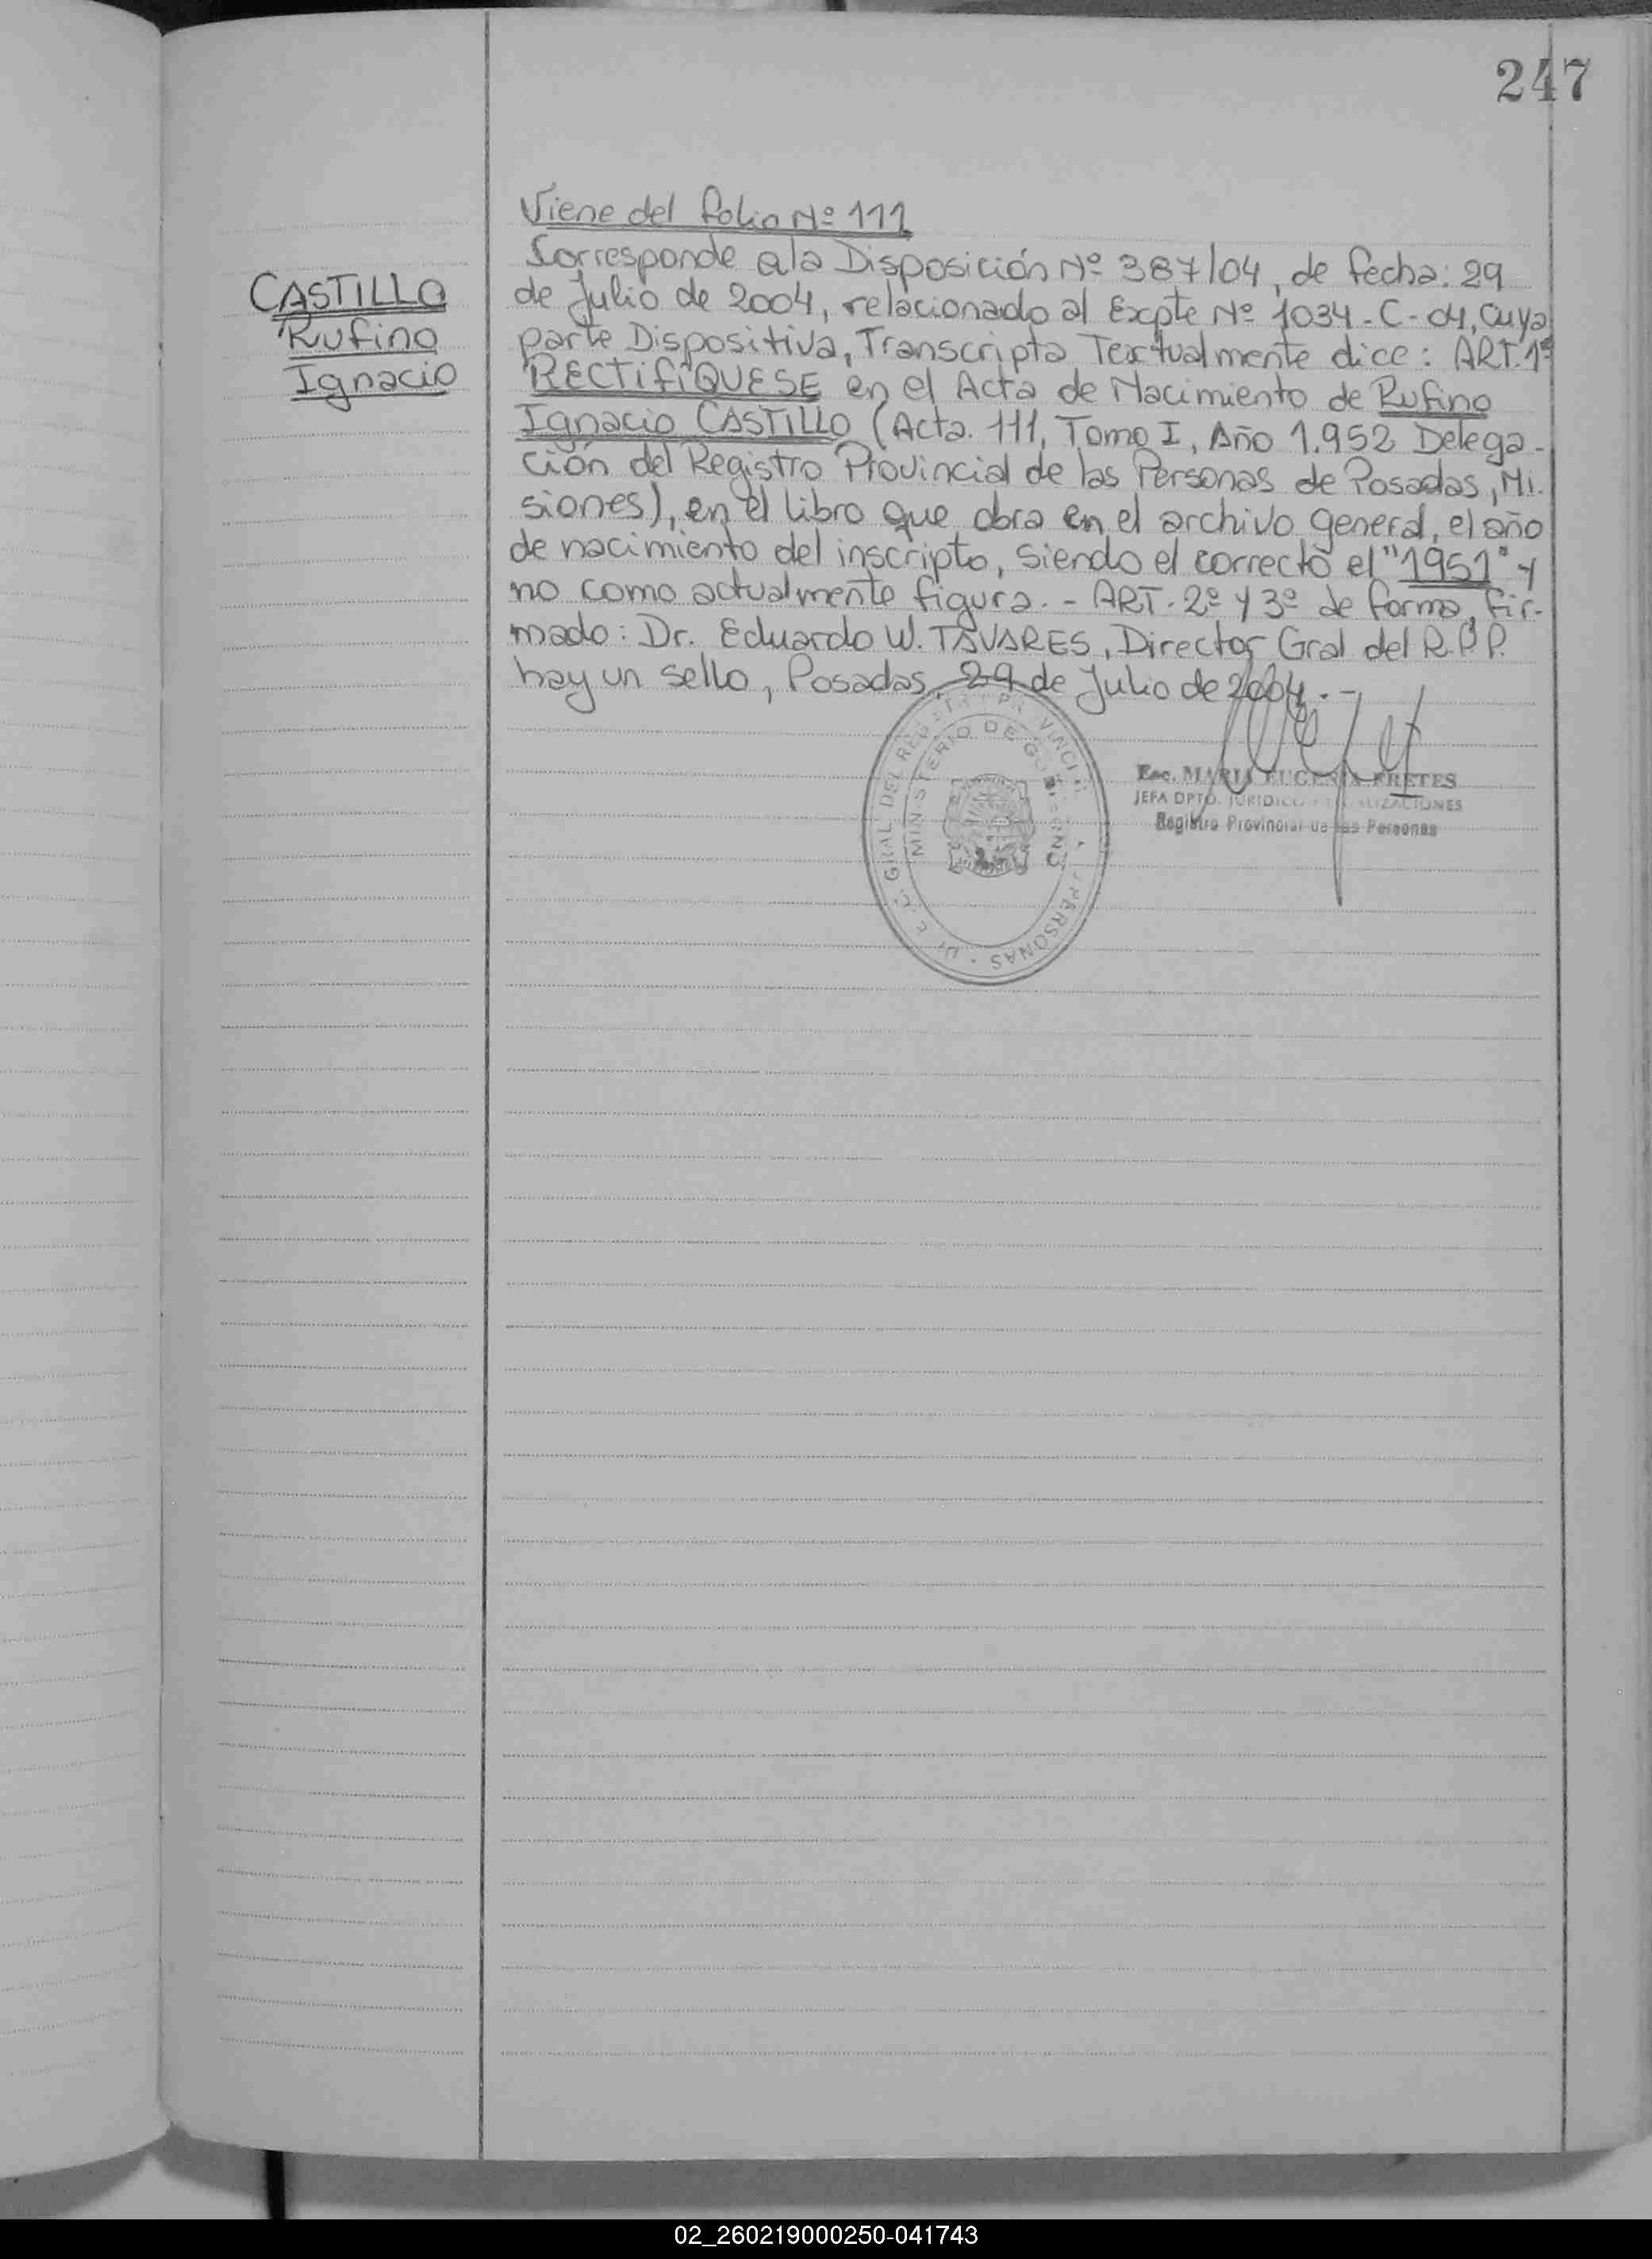 247
Viene del folio Nº 111
CASTILLO
Rufino
Ignacio
Corresponde a la Disposición Nº 387/04, de fecha: 29
de Julio de 2004, relacionado al Expte Nº 1034-C-04, Cuya
parte Dispositiva, Transcripta Textualmente dice: ART. 1º
RECTIFÍQUESE en el Acta de Nacimiento de Rufino
Ignacio CASTILLO (Acta. 111, Tomo I, Año 1.952 Delega-
ción del Registro Provincial de las Personas de Posadas, Mi.
siones), en el libro que obra en el archivo general, el año
de nacimiento del inscripto, siendo el correcto el "1951" y
no como actualmente figura. - ART. 2º y 3º de forma, fir-
mado: Dr. Eduardo W. TAVARES, Director Gral del R.P.P.
hay un sello, Posadas, 29 de Julio de 2004. -
GRAL. DEL PERSONAS
MINISTERIO DE GOBIERNO
Esc. MARIA EUGENIA FRETES
JEFA DPTO. JURIDICO
Registro Provincial de las Personas
02_260219000250-041743